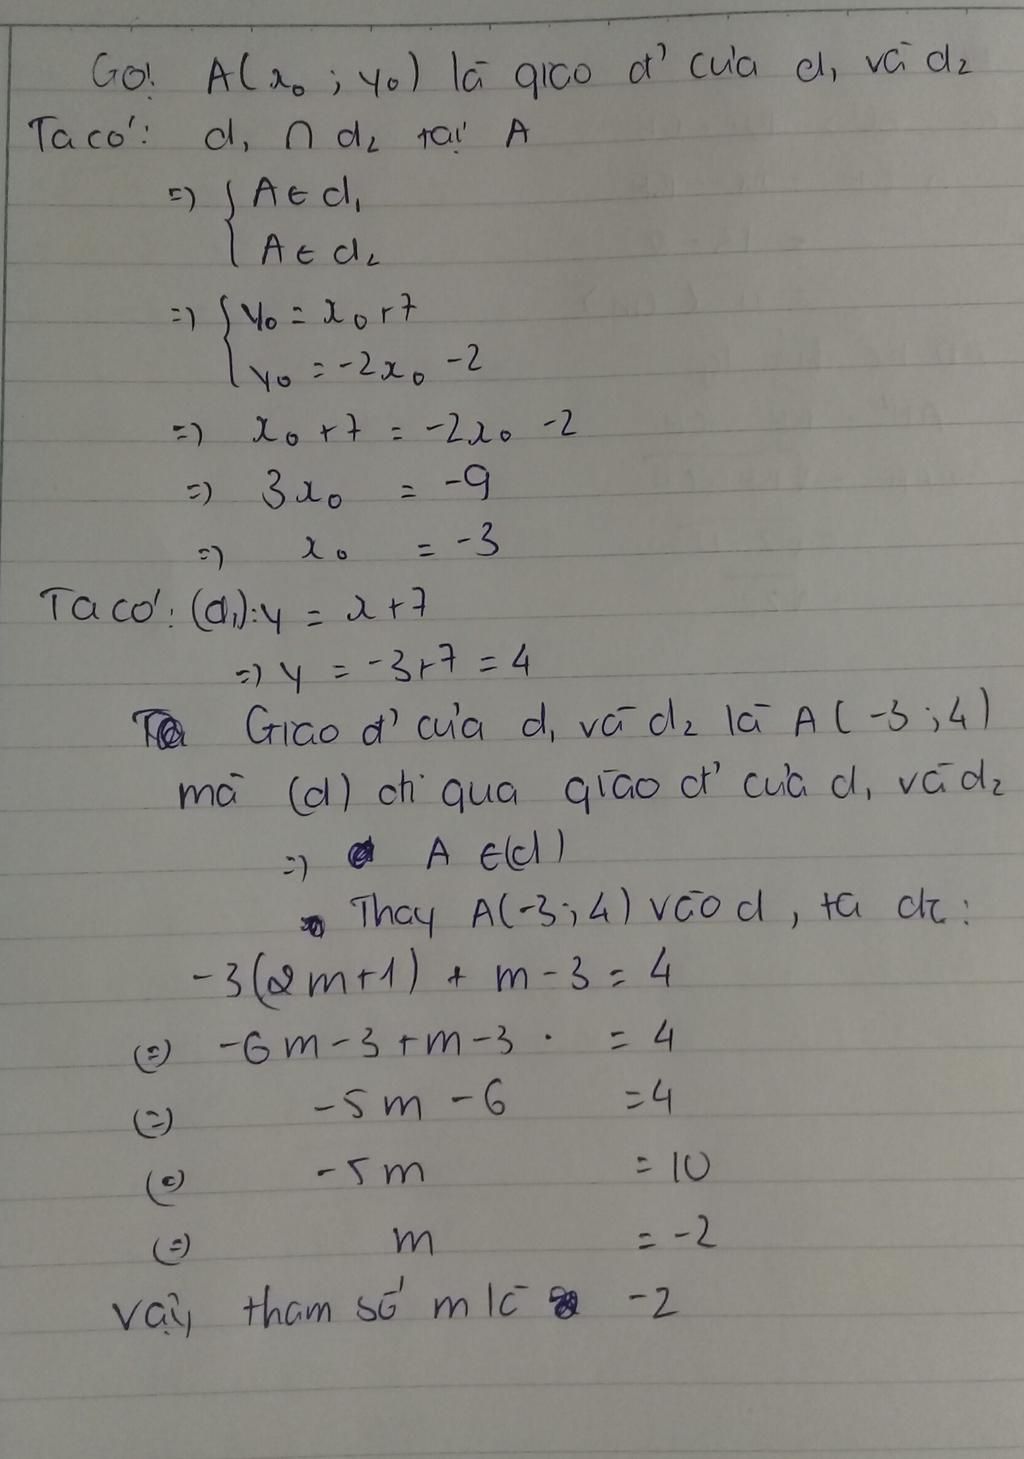 Gọi A(x₀ ; y₀) là giao đ' của d₁ và d₂
Ta có: d₁ ∩ d₂ tại A
=> { A ∈ d₁
A ∈ d₂
=> { y₀ = x₀ + 7
y₀ = -2x₀ - 2
=> x₀ + 7 = -2x₀ - 2
=> 3x₀ = -9
=> x₀ = -3
Ta có: (d₁): y = x + 7
=> y = -3 + 7 = 4
Giao đ' của d₁ và d₂ là A(-3 ; 4)
mà (d) đi qua giao đ' của d₁ và d₂
=> A ∈ (d)
Thay A(-3 ; 4) vào d, ta đc:
-3(2m+1) + m - 3 = 4
(=) -6m - 3 + m - 3 = 4
(=) -5m - 6 = 4
(=) -5m = 10
(=) m = -2
Vậy tham số m là -2